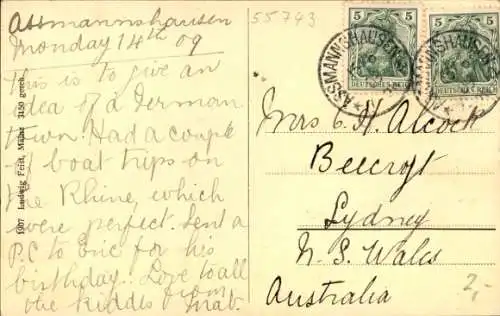 Assmannshausen
Monday 14th 09
This is to give an
idea of a German
town. Had a couple
of boat trips on
the Rhine, which
were perfect. Sent a
P.C to Eric for his
birthday. Love to all
the kiddies from
Mab.
1907 Ludwig Feist, Mainz 3150 gesch.
55743
5 5
DEUTSCHES REICH
ASSMANNSHAUSEN
5 5
DEUTSCHES REICH
ASSMANNSHAUSEN
Mrs C. H. Alcock
Beecroft
Sydney
N. S. Wales
Australia
2,-